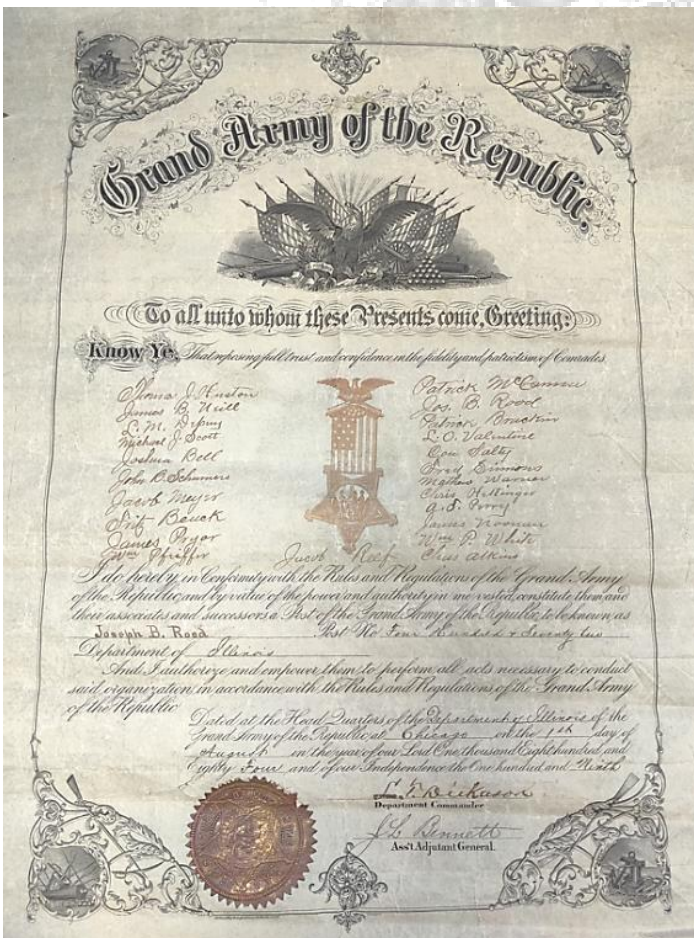 Grand Army of the Republic,
To all unto whom these Presents come, Greeting:
Know Ye, That reposing full trust and confidence in the fidelity and patriotism of Comrades
Thomas J. Huston
James B. Neill
L. M.
Michael J. Scott
Joshua Bell
John B. Schumers
Jacob Meyer
Fritz Beuck
James Pryor
Wm Pfeiffer
Patrick
Jos. B. Rood
Patrick Brackin
L. O. Valentine
Con Salty
Fred Simmons
Mathew Warner
Chris Hettinger
A. S. Perry
James Noonan
Wm P. White
Chas Atkins
Jacob Reef
I do hereby in Conformity with the Rules and Regulations of the Grand Army
of the Republic and by virtue of the power and authority in me vested, constitute them and
their associates and successors a Post of the Grand Army of the Republic to be known as
Joseph B. Rood Post No Four Hundred & Seventy two
Department of Illinois
And I authorize and empower them to perform all acts necessary to conduct
said organization in accordance with the Rules and Regulations of the Grand Army
of the Republic
Dated at the Head Quarters of the Department of Illinois of the
Grand Army of the Republic at Chicago on the 1st day of
August in the year of our Lord One thousand Eight hundred and
Eighty Four and of our Independence the One hundred and Ninth
L. T. Dickason
Department Commander
J L Bennett
Ass't Adjutant General.